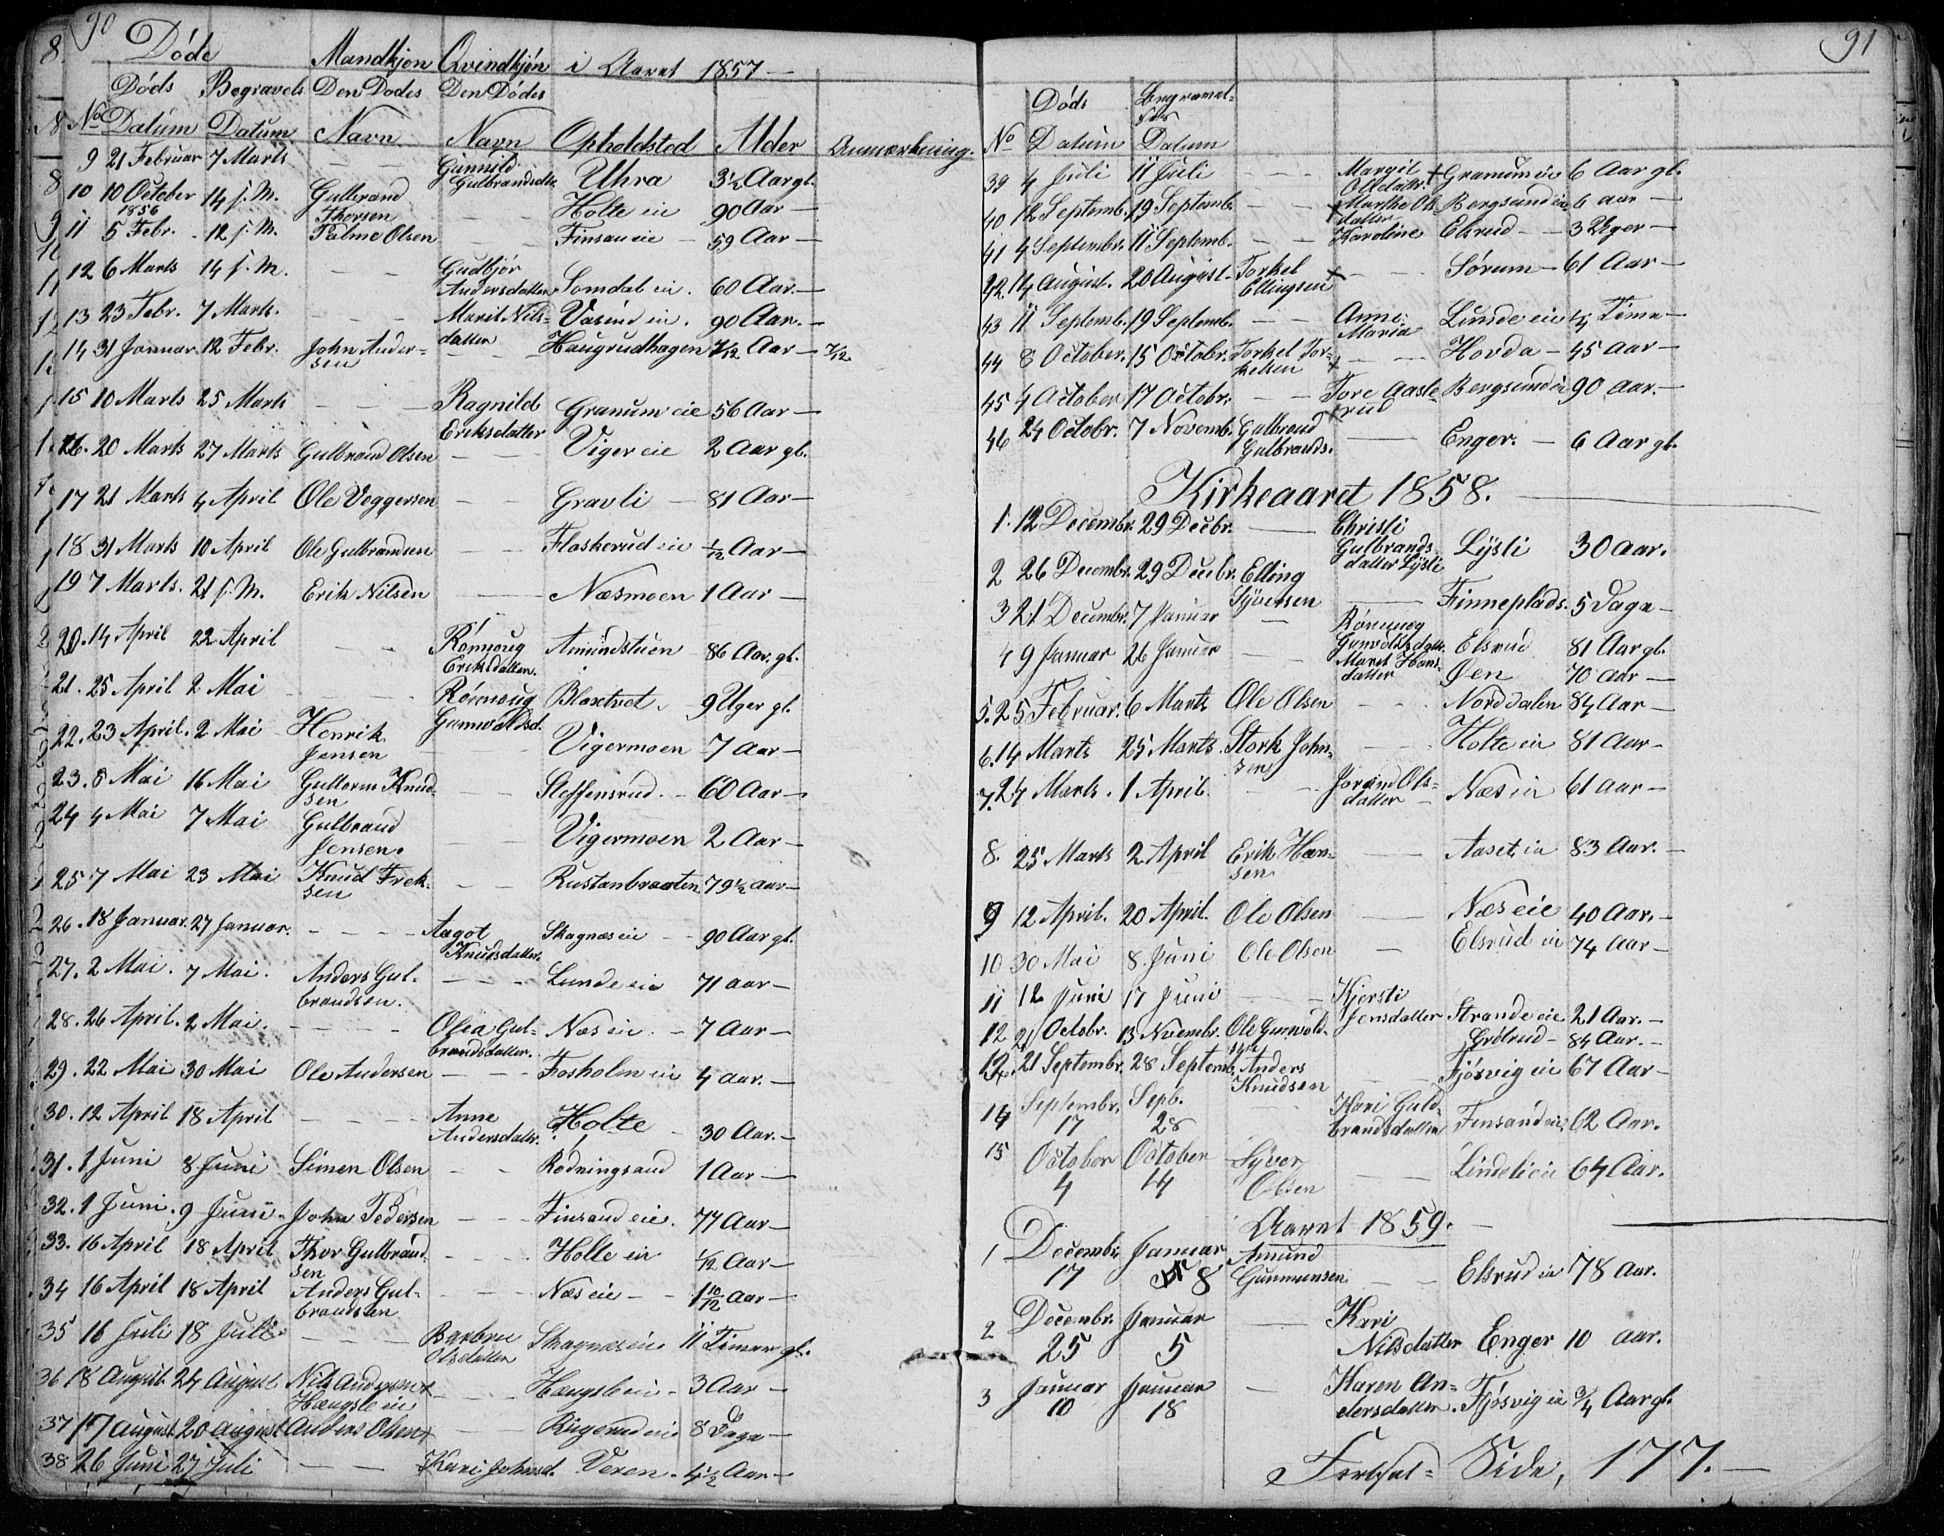 90
Døde Mandkjøn Qvindkjøn i Aaret 1857 —
Døds Begravels Den Dødes Den Dødes
No Datum Datum Navn Navn Opholdsted Alder Anmærkning.
9 21 Februar 7 Marts — — Gunnild Gulbrandsdtr. Uhra 3½ Aar gl.
10 10 October 1856 14 f. M. Gulbrand Thorsen — — Holte eie 90 Aar —
11 5 Febr. 12 f. M. Palme Olsen — — Finsan eie — 59 Aar —
12 6 Marts 14 f. M. — — Gudbjør Andersdatter Somdal eie. 60 Aar. —
13 23 Febr. 7 Marts. — — — Marit Nilsdatter Vasund eie. 90 Aar. —
14 31 Januar 12 Febr. John Andersen — — Haugrudhagen 7/12 Aar — 7/12
15 10 Marts 25 Marts — — — Ragnild Eriksdatter Granum eie 56 Aar —
16. 20 Marts 27 Marts Gulbrand Olsen — — — Viger eie 2 Aar gl.
17 21 Marts 4 April Ole Veggersen — — Gravli — 81 Aar —
18 31 Marts 10 April Ole Gulbrandsen — — Flaskerud eie ½ Aar —
19 7 Marts. 21 f. M. Erik Nilsen — Næsmoen 1 Aar —
20. 14 April 22 April — — Rønnoug Eriksdatter. Amundstuen 86 Aar. gl.
21. 25 April 2 Mai — — — Rønnoug Gunvoldsd. Blaxtvet. 9 Uger gl.
22. 23 April. 2 Mai Henrik Jensen — — Vigermoen 7 Aar —
23. 8 Mai 16 Mai Guttorm Knudsen — — Steffensrud. — 60 Aar —
24 4 Mai 7 Mai Gulbrand Jensen. — — Vigermoen 2 Aar —
25 7 Mai 23 Mai Knud Freksen — — Rustanbraaten 79½ aar —
26. 18 Januar. 27 Januar. — — — — Aagot Knudsdatter. Skagnæs eie — 90 Aar gl.
27. 2 Mai. 7 Mai. Anders Gulbrandsen. — — — Lunde eie 71 aar —
28. 26 April. 2 Mai. — — — — Olia Gulbrandsdatter. Næs eie. — 7 Aar —
29. 22 Mai 30 Mai Ole Andersen — — — Fosholm eie 4 aar. —
30. 12 April 18 April — — — — Anne Andersdatter. Holte — 30 Aar. —
31. 1 Juni 8 Juni Simen Olsen — — Rødningsand 1 Aar —
32. 1 Juni. 9 Juni. John Pedersen — — — Finsand eie. 77 Aar —
33. 16 April 18 April Thor Gulbrandsen — — — Holte eie ½ Aar —
34 16 April 18 April Anders Gulbrandsen — — — Næs eie — — 1 10/12 Aar —
35 16 Juli 18 Juli — — — — Barbru Olsdatter Skagnæs eie 11 Timer gl.
36 18 August. 24 August Nils Andersen + Haugsle eie — — — Haugsle eie — 3 Aar —
37 17 August 20 august Anders Olsen + — — Ringerud eie 8 Dage —
38 26 Juni 27 Juli — — Kari Johnsd. Veren. 4½ Aar —
91
Døds Begravelses
No Datum Datum
39 4 Juli 11 Juli — — — Margit Olsdatter. + Granum eie 6 Aar gl.
40 12 Septemb. 19 Septemb. — — + Marthe Olsdatter Bergsund eie 6 aar —
41 4 Septembr. 11 Septemb. — — Karoline Elsrud — — 3 Uger —
42. 14 August. 20 August. Torkel Ellingsen + — — — Sørum — 61 Aar —
43 11 Septemb. 19 Septemb. — — Anne Maria Lunde eie ¼ Time —
44 8 October. 15 Octobr. Torkel Torkelsen + — — Hovda — 45 aar —
45 4 October 17 Octobr. — — Tore Aasterud Bergsund eie 90 aar. —
46 24 Octobr. 7 Novemb. Gulbrand Gulbrands. — Enger. — 6 Aar gl.
Kirkeaaret 1858.
1. 12 Decembr. 29 Decbr. — Christi Gulbrandsdatter Lysli Lysli 30 Aar.
2 26 Decembr. 29 Decbr. Elling Syversen — Finneplads. 5 Dage —
3 21 Decembr. 7 Januar — Rønnoug Gunvoldsdatter Elsrud 81 Aar gl.
4 9 Januar 26 Januar — — Maret Hansdatter Øen 70 aar —
5. 25 Februar. 6 Marts Ole Olsen — — — Norddalen 84 Aar —
6. 14 Marts 25 Marts. Stork Johnsen — — — Holte eie 81 Aar —
7. 24 Marts. 1 April. — — Jorand Olsdatter — Næs eie 61 aar —
8. 25 Marts 2 April Erik Hansen — Aaset eie 83 Aar. —
9 12 April. 20 April. Ole Olsen — Næs eie 40 Aar. —
10 30 Mai 8 Juni Ole Olsen — Elsrud eie 74 Aar —
11 12 Juni 17 Juni — — Kjersti Jensdatter Strande eie 21 Aar. —
12 21 Octobr. 13 Novembr. Ole Gunvoldsen Grøterud — 84 Aar. —
13. 21 Septembr. 28 Septemb. Anders Knudsen — — Fjøsvig eie 67 Aar —
14 Septembr. 17 Sepb. 28 Kari Guldbrandsdatter Finsand eie, 62 Aar.
15 October 4 October 14 Syver Olsen — — Lindeli eie 64 Aar.
Aaret 1859. —
1 Decembr. 17 Januar 8 Amund Gunmunsen — — Elsrud eie 78 Aar.
2 Decembr. 25 Januar 5 — Kari Nilsdatter Enger 10 aar.
3 Januar 10 Januar 18 — Karen Andersdatter. Fjøsvig eie ¾ Aar gl.
Fortsat = Side, 177. —